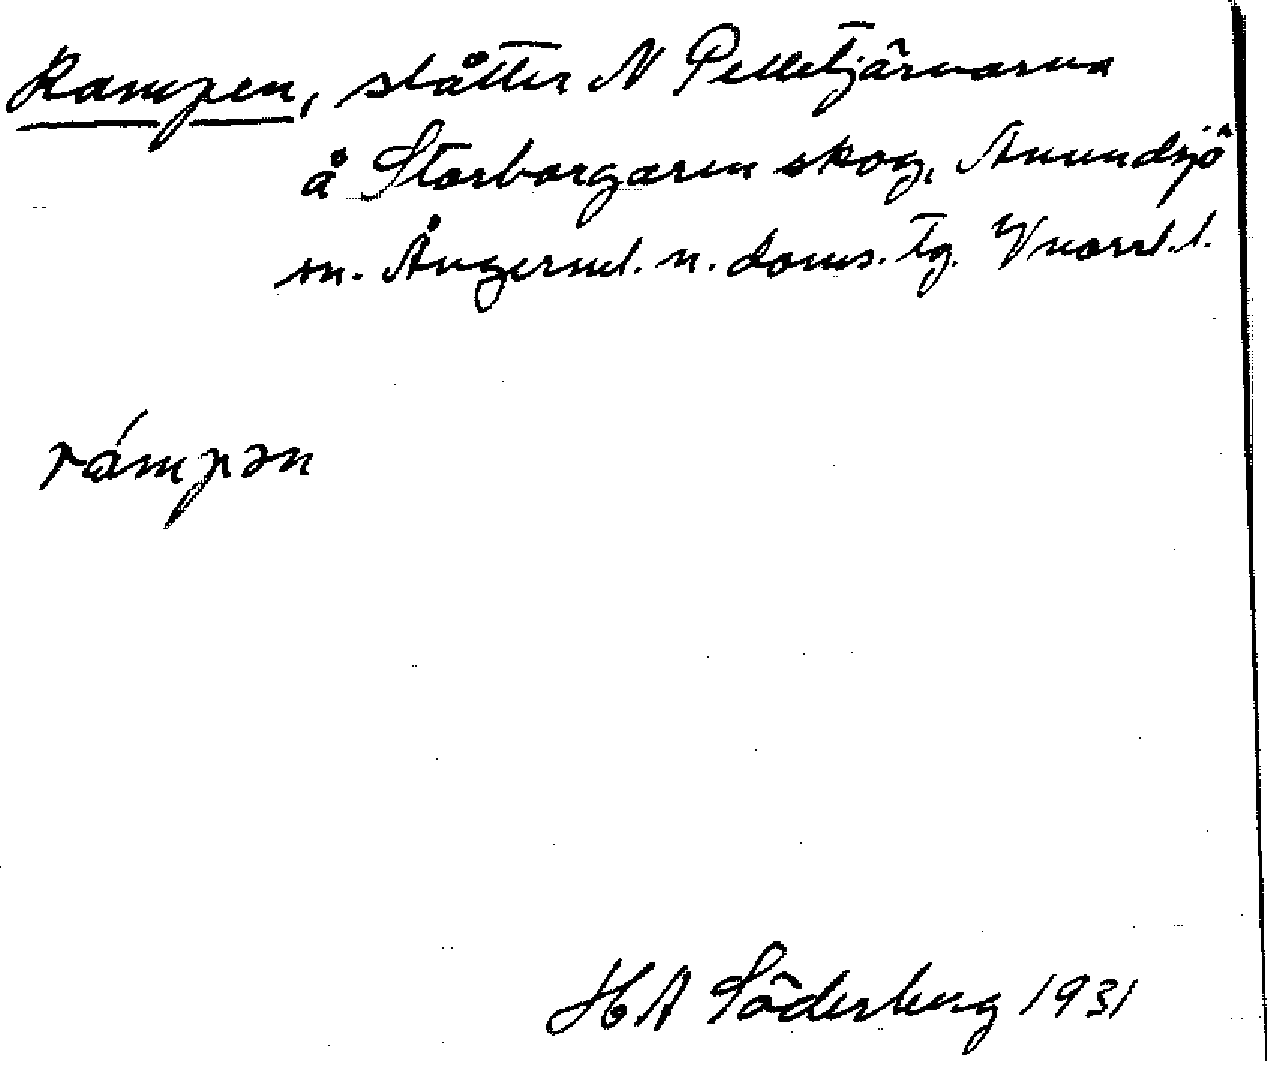 Rampen, slåtter N Pelletjärnarna
å Storborgaren skog, Anundsjö
sn. Ångerml. n. doms. tg. Vnorrl. l.
rámpən
HA Söderberg 1931